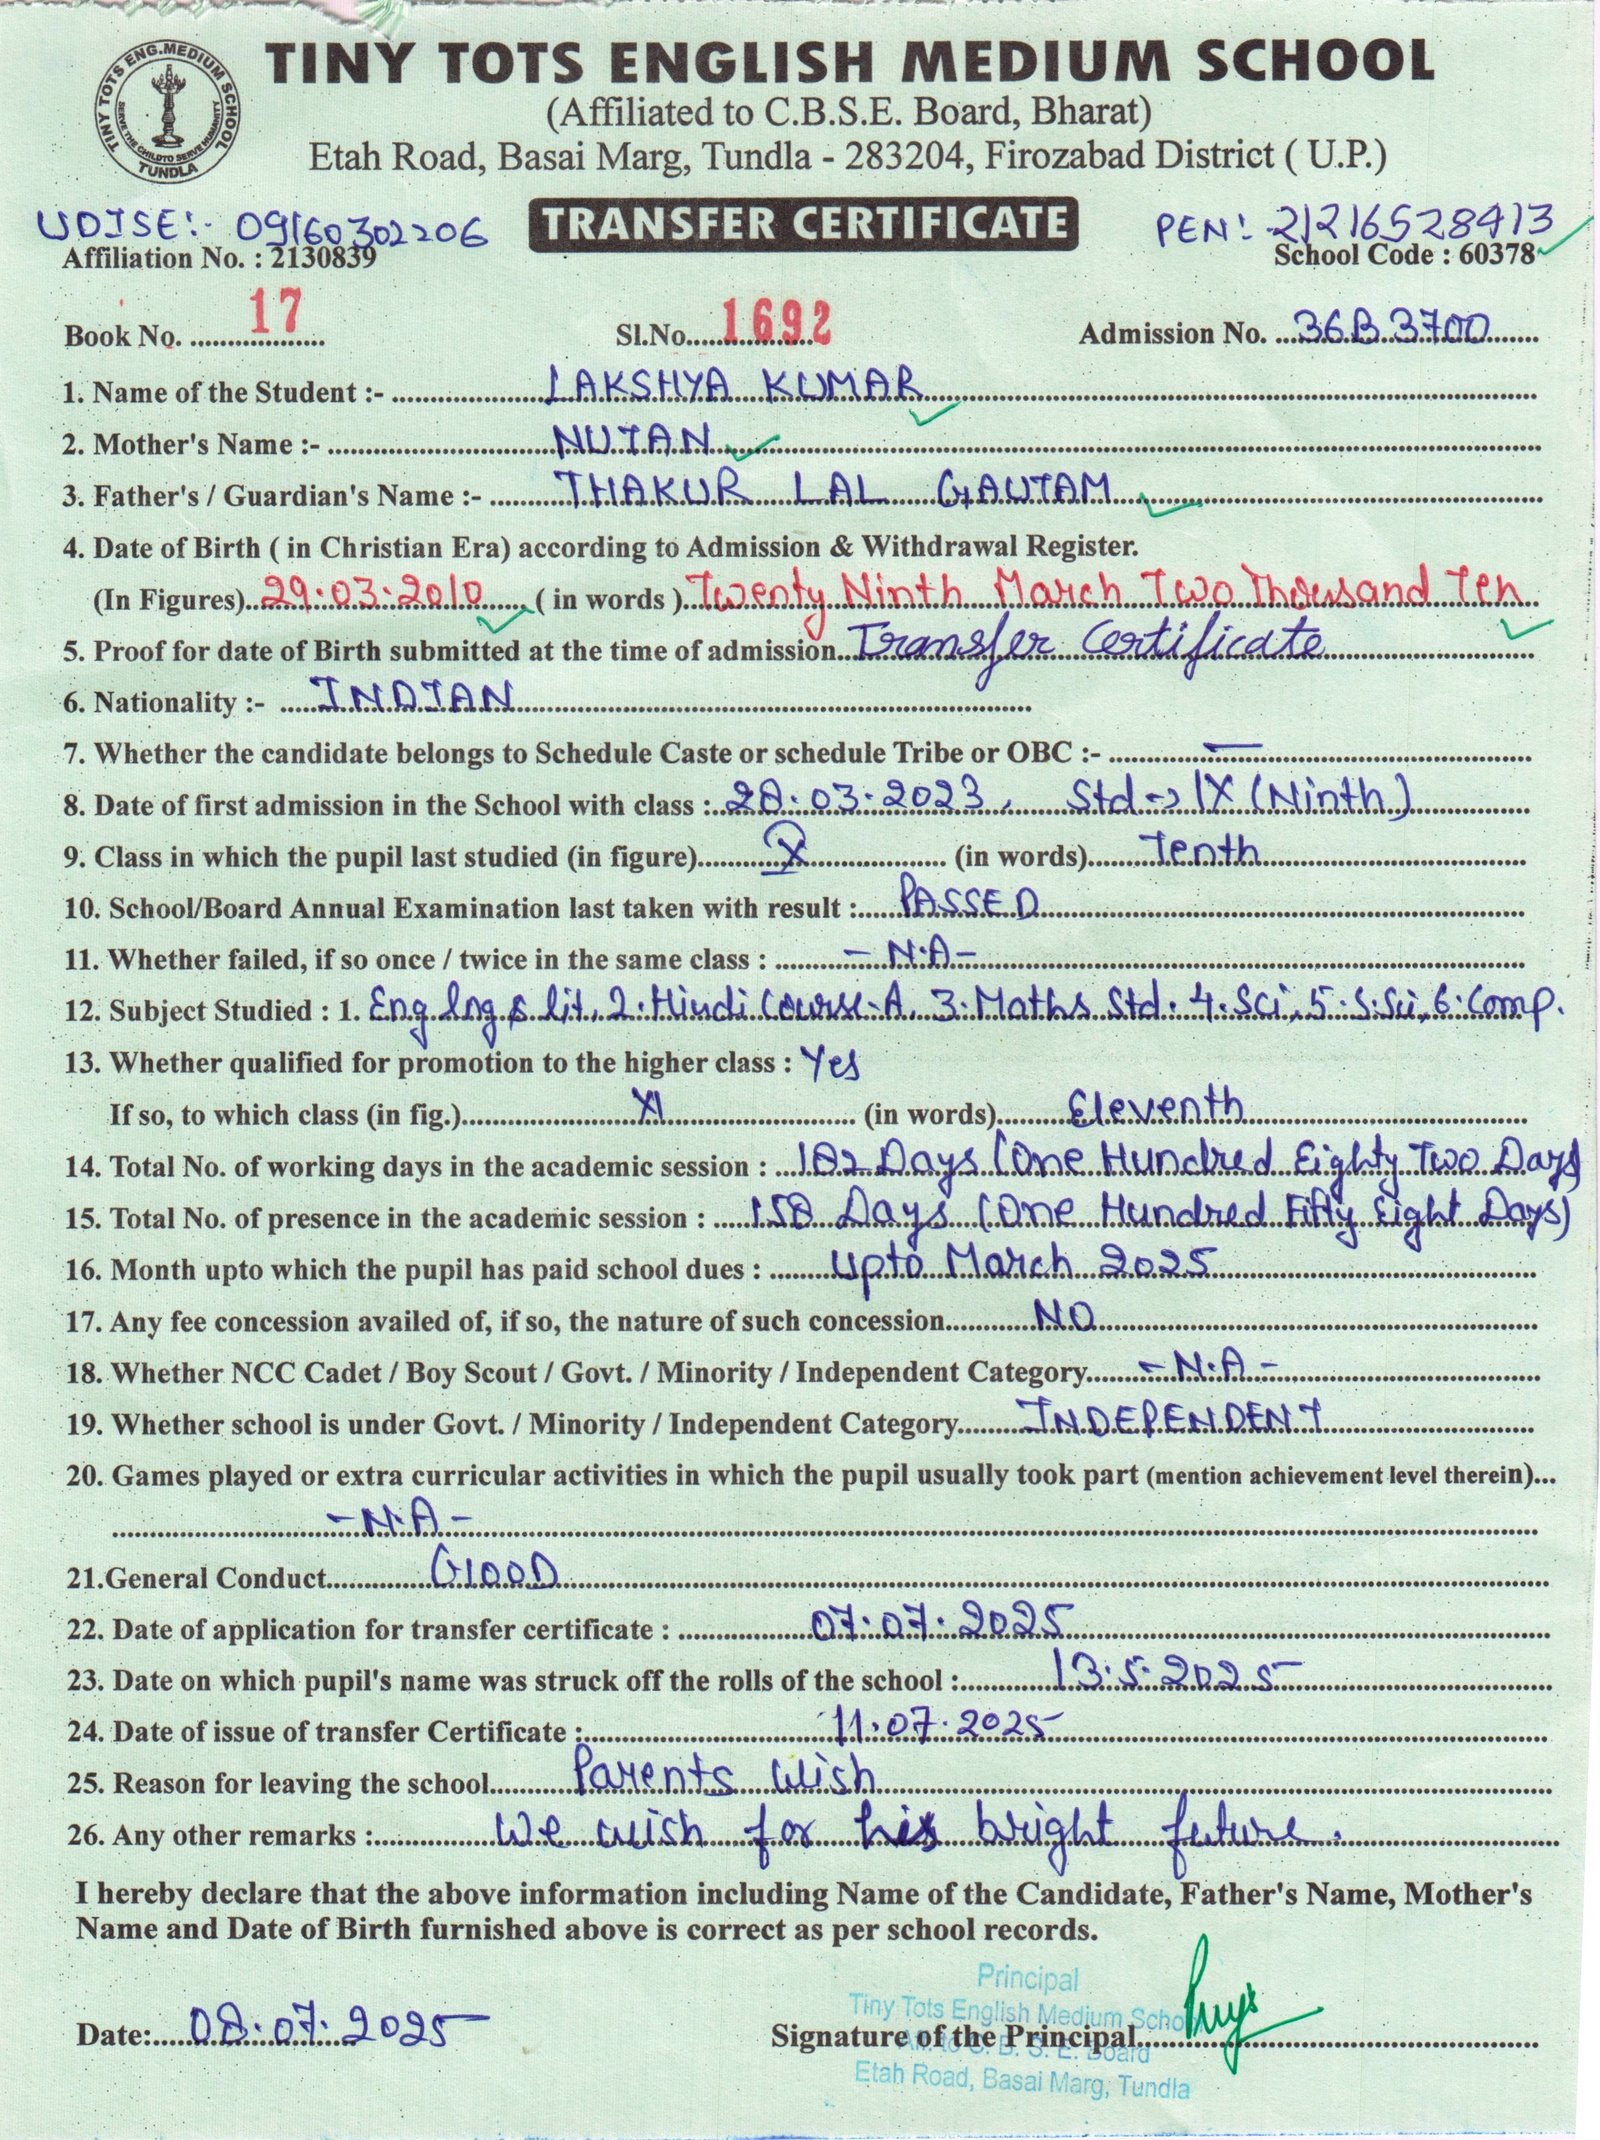 TINY TOTS ENG.MEDIUM SCHOOL
SERVE THE CHILD TO SERVE HUMANITY
TUNDLA
TINY TOTS ENGLISH MEDIUM SCHOOL
(Affiliated to C.B.S.E. Board, Bharat)
Etah Road, Basai Marg, Tundla - 283204, Firozabad District ( U.P.)
TRANSFER CERTIFICATE
UDISE:- 09160302206
PEN:- 21216528413
Affiliation No. : 2130839
School Code : 60378
Book No. 17 Sl.No. 1692 Admission No. 36B3700
1. Name of the Student :- LAKSHYA KUMAR
2. Mother's Name :- NUTAN
3. Father's / Guardian's Name :- THAKUR LAL GAUTAM
4. Date of Birth ( in Christian Era) according to Admission & Withdrawal Register.
(In Figures) 29.03.2010 ( in words ) Twenty Ninth March Two Thousand Ten
5. Proof for date of Birth submitted at the time of admission Transfer Certificate
6. Nationality :- INDIAN
7. Whether the candidate belongs to Schedule Caste or schedule Tribe or OBC :- —
8. Date of first admission in the School with class : 28.03.2023, Std -> IX (Ninth)
9. Class in which the pupil last studied (in figure) X (in words) Tenth
10. School/Board Annual Examination last taken with result : PASSED
11. Whether failed, if so once / twice in the same class : - N.A -
12. Subject Studied : 1. Eng lng & lit, 2. Hindi Course-A, 3. Maths Std. 4. Sci, 5. S.Sci, 6. Comp.
13. Whether qualified for promotion to the higher class : Yes
If so, to which class (in fig.) XI (in words) Eleventh
14. Total No. of working days in the academic session : 182 Days (One Hundred Eighty Two Days)
15. Total No. of presence in the academic session : 158 Days (One Hundred Fifty Eight Days)
16. Month upto which the pupil has paid school dues : upto March 2025
17. Any fee concession availed of, if so, the nature of such concession NO
18. Whether NCC Cadet / Boy Scout / Govt. / Minority / Independent Category - N.A -
19. Whether school is under Govt. / Minority / Independent Category INDEPENDENT
20. Games played or extra curricular activities in which the pupil usually took part (mention achievement level therein)...
- N.A -
21.General Conduct GOOD
22. Date of application for transfer certificate : 07.07.2025
23. Date on which pupil's name was struck off the rolls of the school : 13.5.2025
24. Date of issue of transfer Certificate : 11.07.2025
25. Reason for leaving the school Parents wish
26. Any other remarks : We wish for his bright future.
I hereby declare that the above information including Name of the Candidate, Father's Name, Mother's
Name and Date of Birth furnished above is correct as per school records.
Principal
Tiny Tots English Medium School
Date: 08.07.2025 Signature of the Principal
Aff. to C. B. S. E. Board
Etah Road, Basai Marg, Tundla